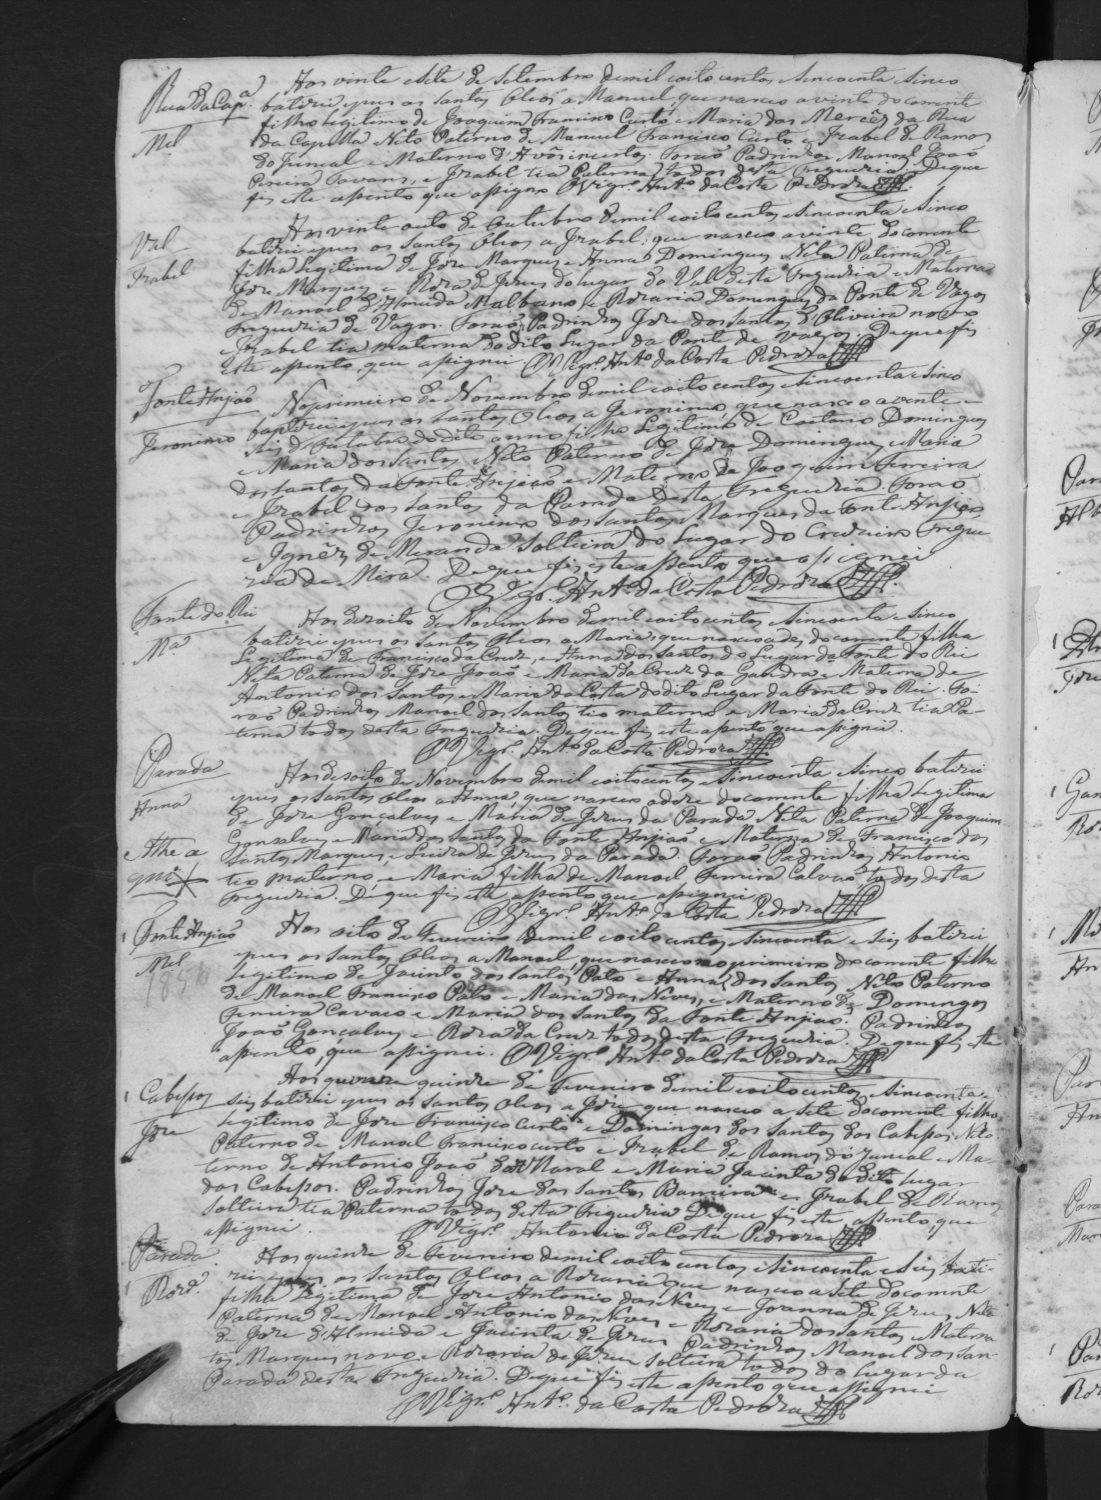 Rua da Cap.ª
M.el
Aos vinte e sete de Setembro de mil oito centos e sincoenta e sinco
baticei e pus os Santos Oleos a Manuel, que nasceo a vinte do corrente
filho legitimo de Joaquim Francisco Curto e Maria das Mercês da Rua
da Capella Neto Paterno de Manuel Francisco Curto e Izabel de Ramos
do Juncal e Materno d'Avós incertos. Forão Padrinhos Manoel João
Pereira Tavares, e Izabel tia Paterna todos desta Freguezia. De que
fis este assento que assigno O Vigr.º Ant.º da Costa Pedroza
Val
Izabel
Aos vinte outo de Outubro de mil oito centos e sincoenta e sinco
baticei e pus os Santos Oleos a Izabel, que nasceo a vinte do corrente
filha legitima de Joze Marques e Anna Domingues Neta Paterna de
Joze Marques e Roza de Jezus do lugar do Val desta Freguezia e Materna
de Manoel d'Almeida Malhano e Rozaria Domingues da Ponte de Vagos
Freguezia de Vagos. Forão Padrinhos Joze dos Santos d'Oliveira novo
e Izabel tia materna do dito Lugar da Ponte de vagos. De que fis
este assento que assignei O Vigr.º Ant.º da Costa Pedroza
Fonte Anjião
Jeronimo
No primeiro de Novembro de mil oito centos e sincoenta e sinco
baptizei e pus os santos Oleos a Jeronimo, que nasceo a vinte e
seis d'Outubro do dito anno filho Legitimo de Caetano Domingues
e Maria dos Santos, Neto Paterno de Joze Domingues, e Maria
dos Santos da Fonte Anjião e Materno de Joaquim Ferreira
e Izabel dos Santos da Parada desta Freguezia. Forão
Padrinhos Jeronimo dos Santos Marques da Fonte Anjião
e Ignêz de Meranda Solteira do Lugar do Cruzeiro Fregue
zia de Mira. De que fis este assento que assignei
O Vigr.º Ant.º da Costa Pedroza
Fonte do Rei
M.ª
Aos dezoito de Novembro de mil oito centos e sincoenta e sinco
baticei e pus os Santos Oleos a Maria, que nasceo a dez do corrente filha
Legitima de Francisco da Cruz, e Anna dos Santos do Lugar da Fonte do Rei
Neta Paterna de Joze João e Maria da Cruz da Gandra e Materna de
Antonio dos Santos e Maria da Costa do dito Lugar da Fonte do Rei. Fo-
rão Padrinhos Manoel dos Santos tio materno e Maria da Cruz tia Pa-
terna todos desta Freguezia. De que fis este assento que assignei.
O Vigr.º Ant.º da Costa Pedroza
Parada
Anna
Athe a
qui
Aos desoito de Novembro de mil oito centos e sincoenta e sinco baticei
e pus os Santos Oleos a Anna, que nasceo a doze do corrente filha Legitima
de Joze Gonçalves e Maria de Jezus da Parada Neta Paterna de Joaquim
Gonsalves e Maria dos Santos da Fonte Anjião e Materna de Francisco dos
Santos Marques, e Luiza de Jezus da Parada. Forão Padrinhos Antonio
tio materno e Maria filha de Manoel Ferreira Calvão todos desta
Freguezia. De que fis este assento que assignei
O Vigr.º Ant.º da Costa Pedroza
Fonte Anjião
M.el
1856
Aos oito de Fevereiro de mil oito centos sincoenta e seis baticei
e pus os Santos Oleos a Manoel, que nasceo no primeiro do corrente filho
Legitimo de Jacinto dos Santos Pato e Anna dos Santos Neto Paterno
de Manoel Francisco Pato e Maria das Neves, e Materno de Domingos
Ferreira Cavaco e Maria dos Santos da Fonte Anjião. Padrinhos
João Gonçalves e Roza da Cruz todos desta Freguezia. De que fis este
assento que assignei. O Vigr.º Ant.º da Costa Pedroza
Cabessos
Joze
Aos quinze de Fevereiro de mil oito centos, e sincoenta e
seis baticei e pus os Santos Oleos a Joze que nasceo a sete do corrente filho
Legitimo de Joze Francisco Curto e Domingas dos Santos dos Cabessos Neto
Paterno de Manoel Francisco Curto e Izabel de Ramos do Juncal e Ma-
terno de Antonio João e Maria Jacinta do dito lugar
dos Cabessos. Padrinhos Joze dos Santos e Izabel de Ramos
Solteira tia Paterna todos desta Freguezia De que fis este assento que
assignei. O Vigr.º Antonio da Costa Pedroza
Parada
Roz.ª
Aos quinze de Fevereiro de mil oito centos e sincoenta e seis bati-
cei e pus os Santos Oleos a Rozaria que nasceo a sete do corrente
filha Legitima de Joze Antonio das Neves e Joanna de Jezus Neta
Paterna de Manoel Antonio das Neves e Rozaria dos Santos e Materna
de Joze d'Almeida e Jacinta de Jezus Padrinhos Manoel dos San-
tos Marques novo e Rozaria de Jezus Solteira todos do Lugar da
Parada desta Freguezia. De que fis este assento que assignei
O Vigr.º Ant.º da Costa Pedroza